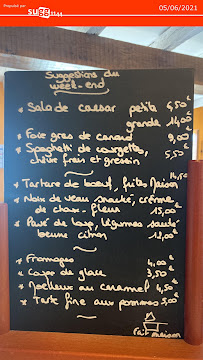 Proposé par
sugg
05/06/2021
Suggestions du
week-end
* Salade caesar petite 6,50€
grande 14,00€
* Foie gras de canard 9,00€
* Spaghetti de courgettes, 5,50€
chèvre frais et gressin
* Tartare de bœuf, frites Maison 14,50€
* Noix de veau snacké, crème
de choux-fleur 15,00€
* Pavé de loup, légumes sauté
beurre citron
* Fromages 4,00€
* Coupe de glace 3,50€
* Moelleux au caramel 4,50€
* Tarte fine aux pommes 5,00€
Fait maison